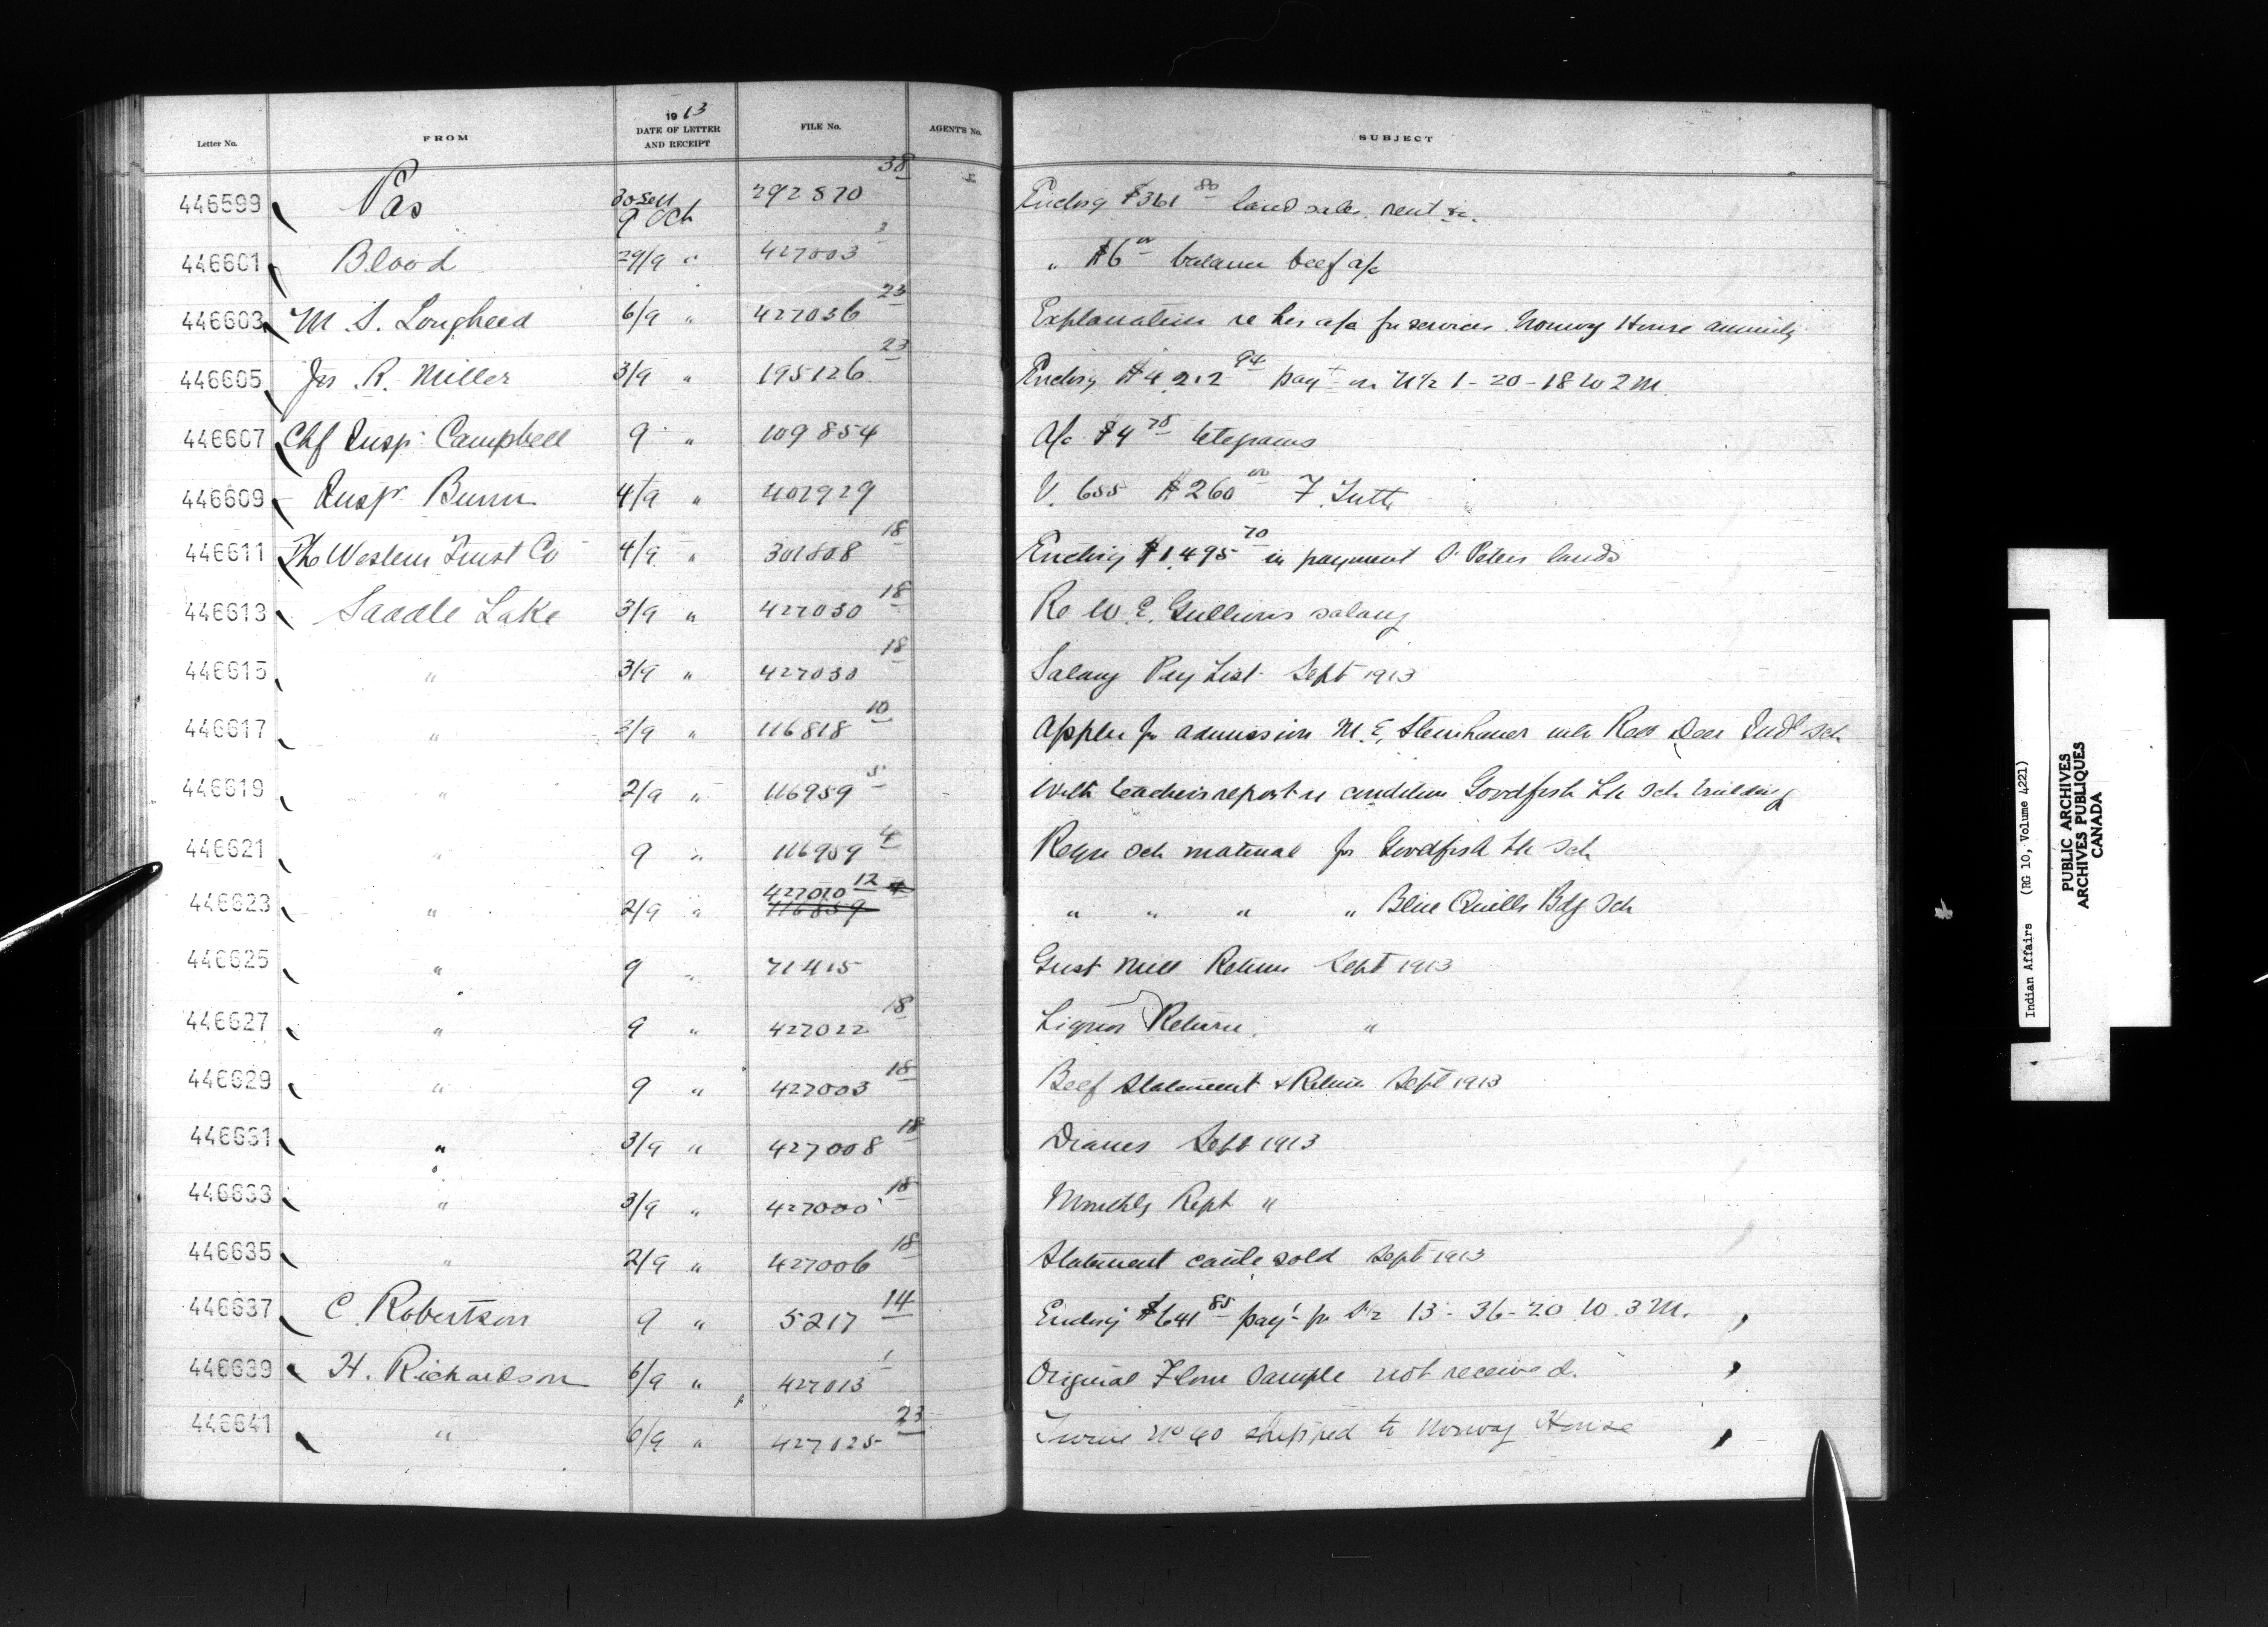 Letter No. FROM 1913 DATE OF LETTER AND RECEIPT FILE No. AGENT'S No. SUBJECT
446599 Pas 30 Sep 9 Oct 292870 38 Enclosg $361 80 land sales, rent &c.
446601 Blood 29/9 " 427003 3 " $6 00 balance beef a/c
446603 M. S. Lougheed 6/9 " 427036 23 Explanation re his a/c for services Norway House annuity
446605 Jas. R. Miller 3/9 " 195126 23 Enclosg $4212 94 payt on N½ 1-20-18 W 2 M.
446607 Chf Insp. Campbell 9 " 109854 A/c $4 78 telegrams
446609 Insp Bunn 4/9 " 402929 V. 655 $260 00 F. Tutt
446611 The Western Trust Co 4/9 " 301808 18 Enclosg $1,495 70 in payment St Peters lands
446613 Saddle Lake 3/9 " 427030 18 Re W. E. Gullion's salary
446615 " 3/9 " 427030 18 Salary Pay List Sept 1913
446617 " 3/9 " 116818 10 Appln for admission M. E. Steinhauer into Red Deer Indl Sch
446619 " 2/9 " 116959 5 With teacher's report re condition Goodfish Lk Sch building
446621 " 9 " 116959 4 Reqn Sch material for Goodfish Lk Sch
446623 " 2/9 " 427020 12 116859 4 " " " " Blue Quills Bdg Sch
446625 " 9 " 71415 Grist Mill Return Sept 1913
446627 " 9 " 427022 18 Liquor Return "
446629 " 9 " 427003 18 Beef Statement & Return Sept 1913
446631 " 3/9 " 427008 18 Diaries Sept 1913
446633 " 3/9 " 427000 18 Monthly Rept "
446635 " 2/9 " 427006 18 Statement cattle sold Sept 1913
446637 C. Robertson 9 " 5217 14 Enclosg $641 85 payt for S½ 13-36-20 W. 3 M.
446639 H. Richardson 6/9 " 427013 1 Original Flour sample not received.
446641 " 6/9 " 427025 23 Twine No 40 shipped to Norway House
Indian Affairs (RG 10, Volume 4221)
PUBLIC ARCHIVES
ARCHIVES PUBLIQUES
CANADA